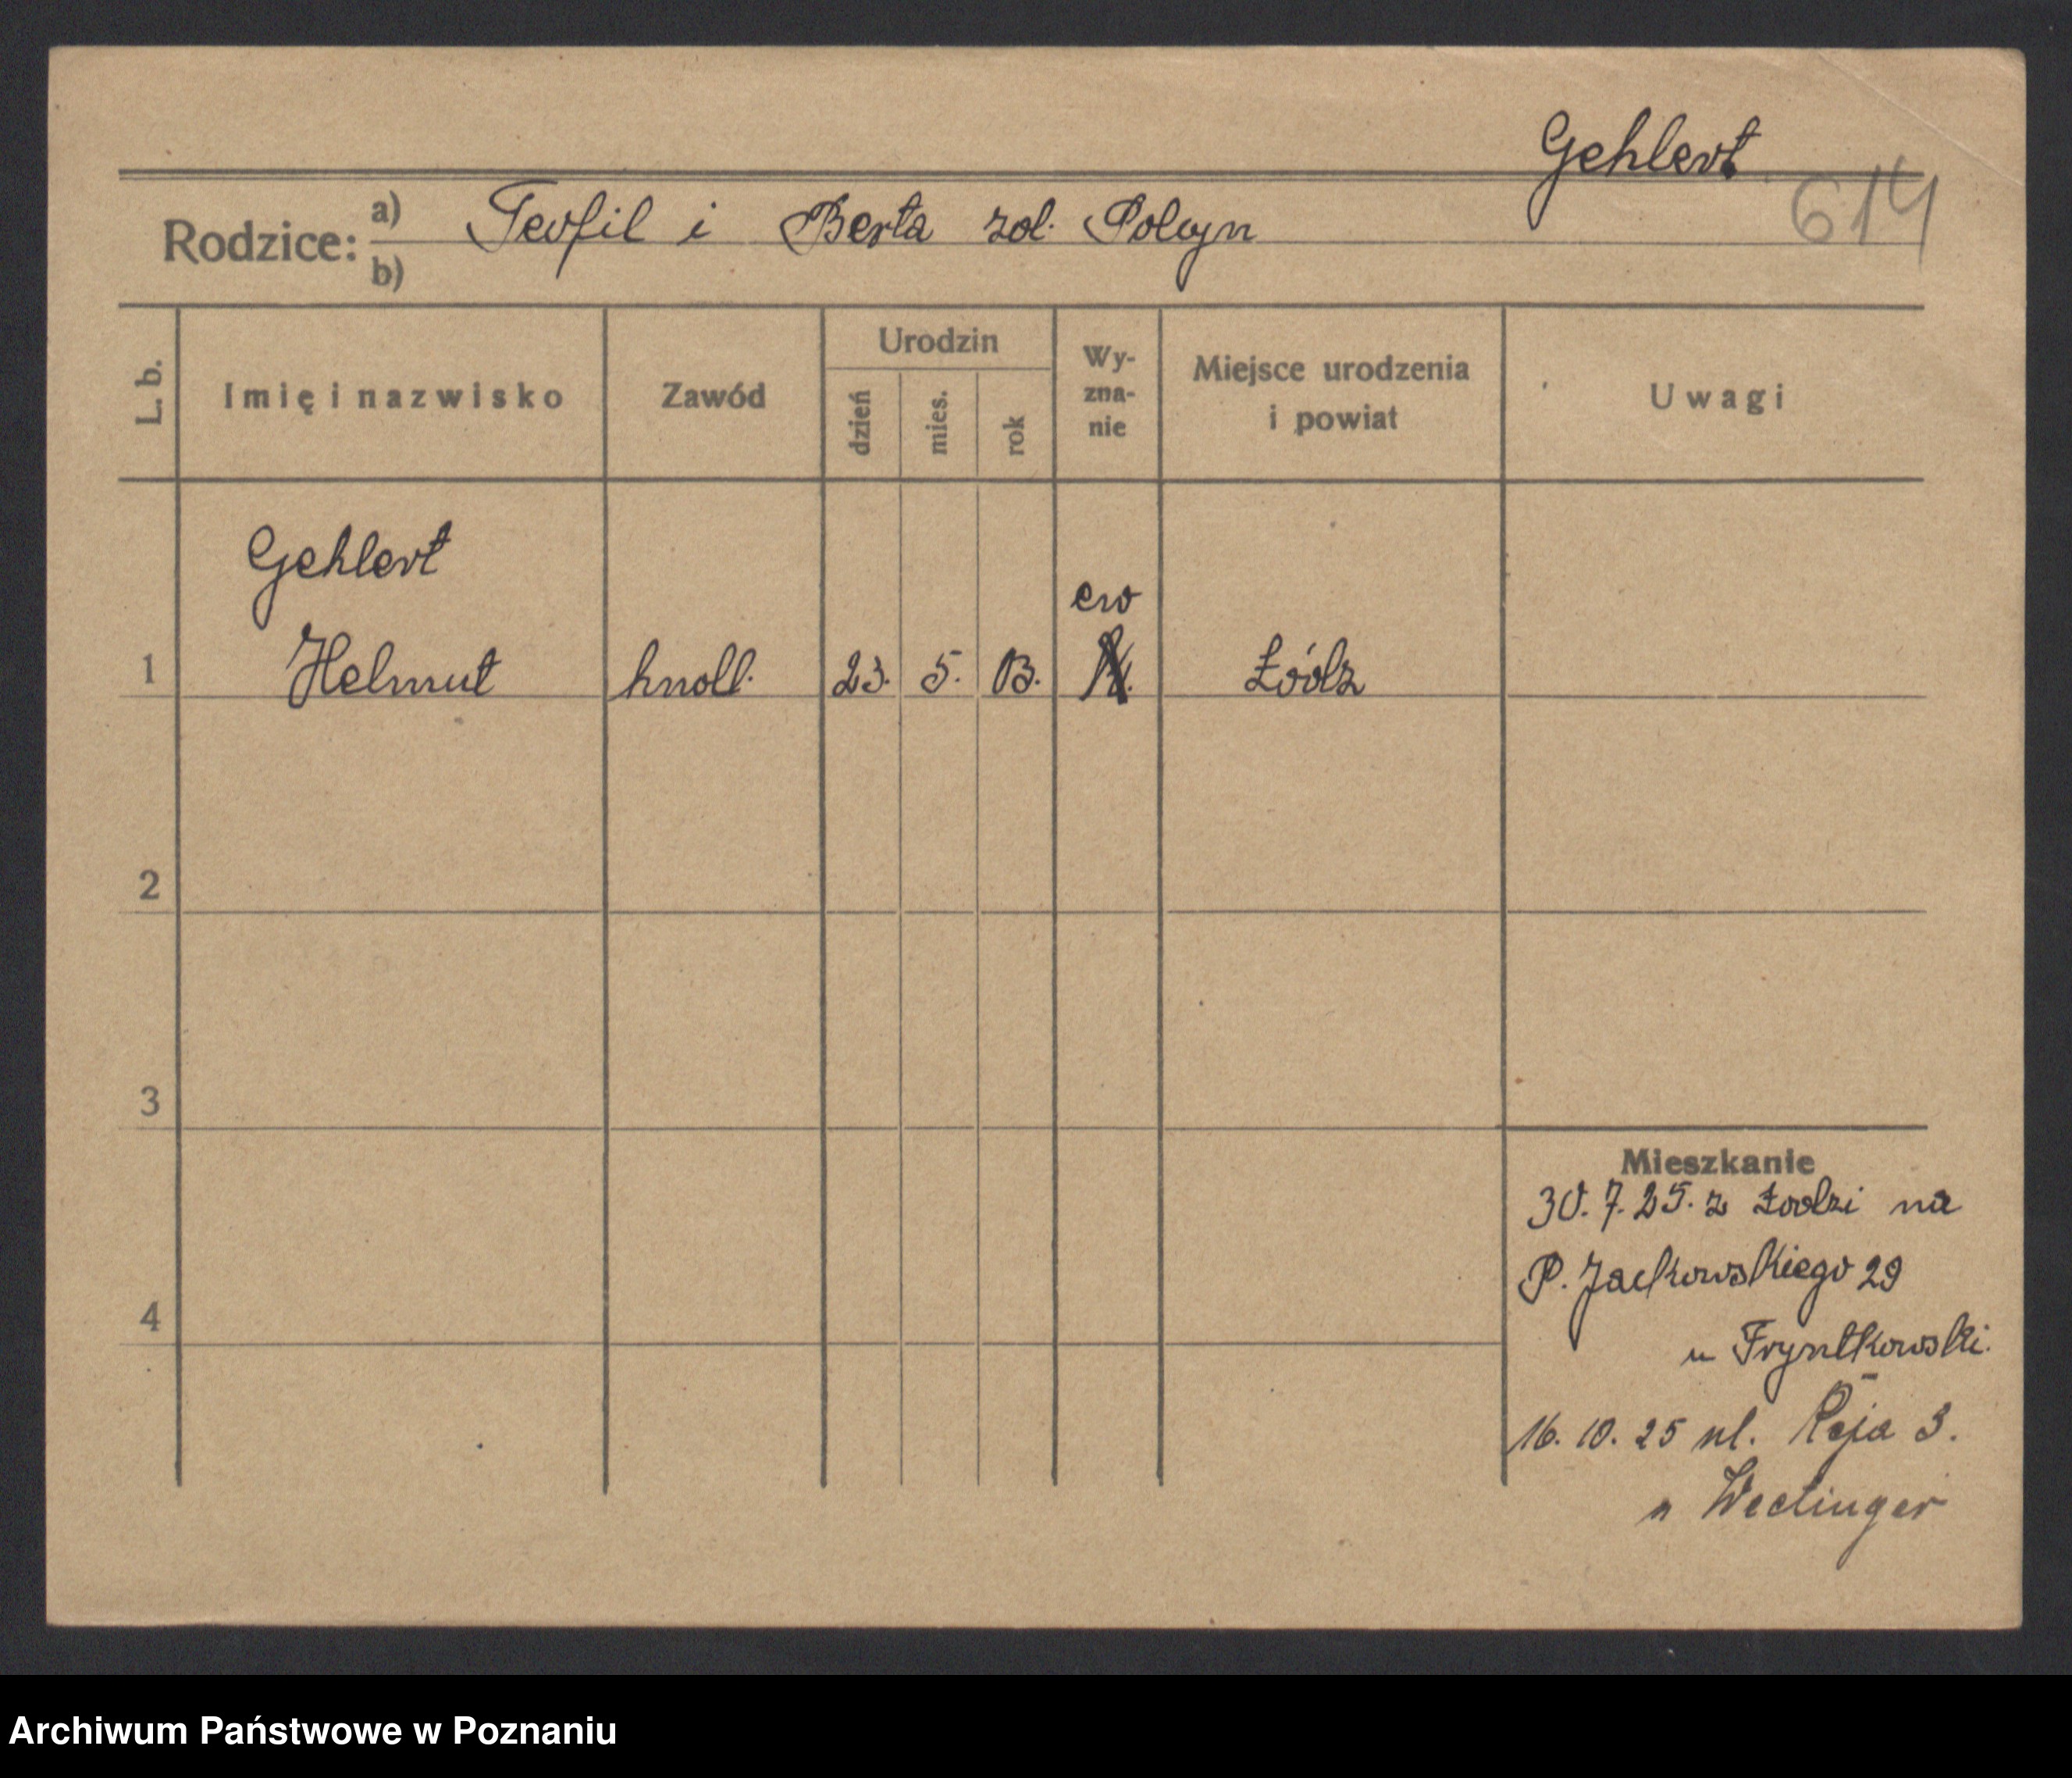 Gehlert
614
Rodzice: a) Teofil i Berta zd. Polcyn
b)
L. b. Imię i nazwisko Zawód Urodzin dzień mies. rok Wy-zna-nie Miejsce urodzenia i powiat Uwagi
Gehlert
ew
1 Helmut hndl. 23. 5. 03. Łódz
2
3
Mieszkanie
30. 7. 25. z Łodzi na
P. Jackowskiego 29
4
u Fryntkowski.
16. 10. 25 ul. Reja 3.
u
Archiwum Państwowe w Poznaniu